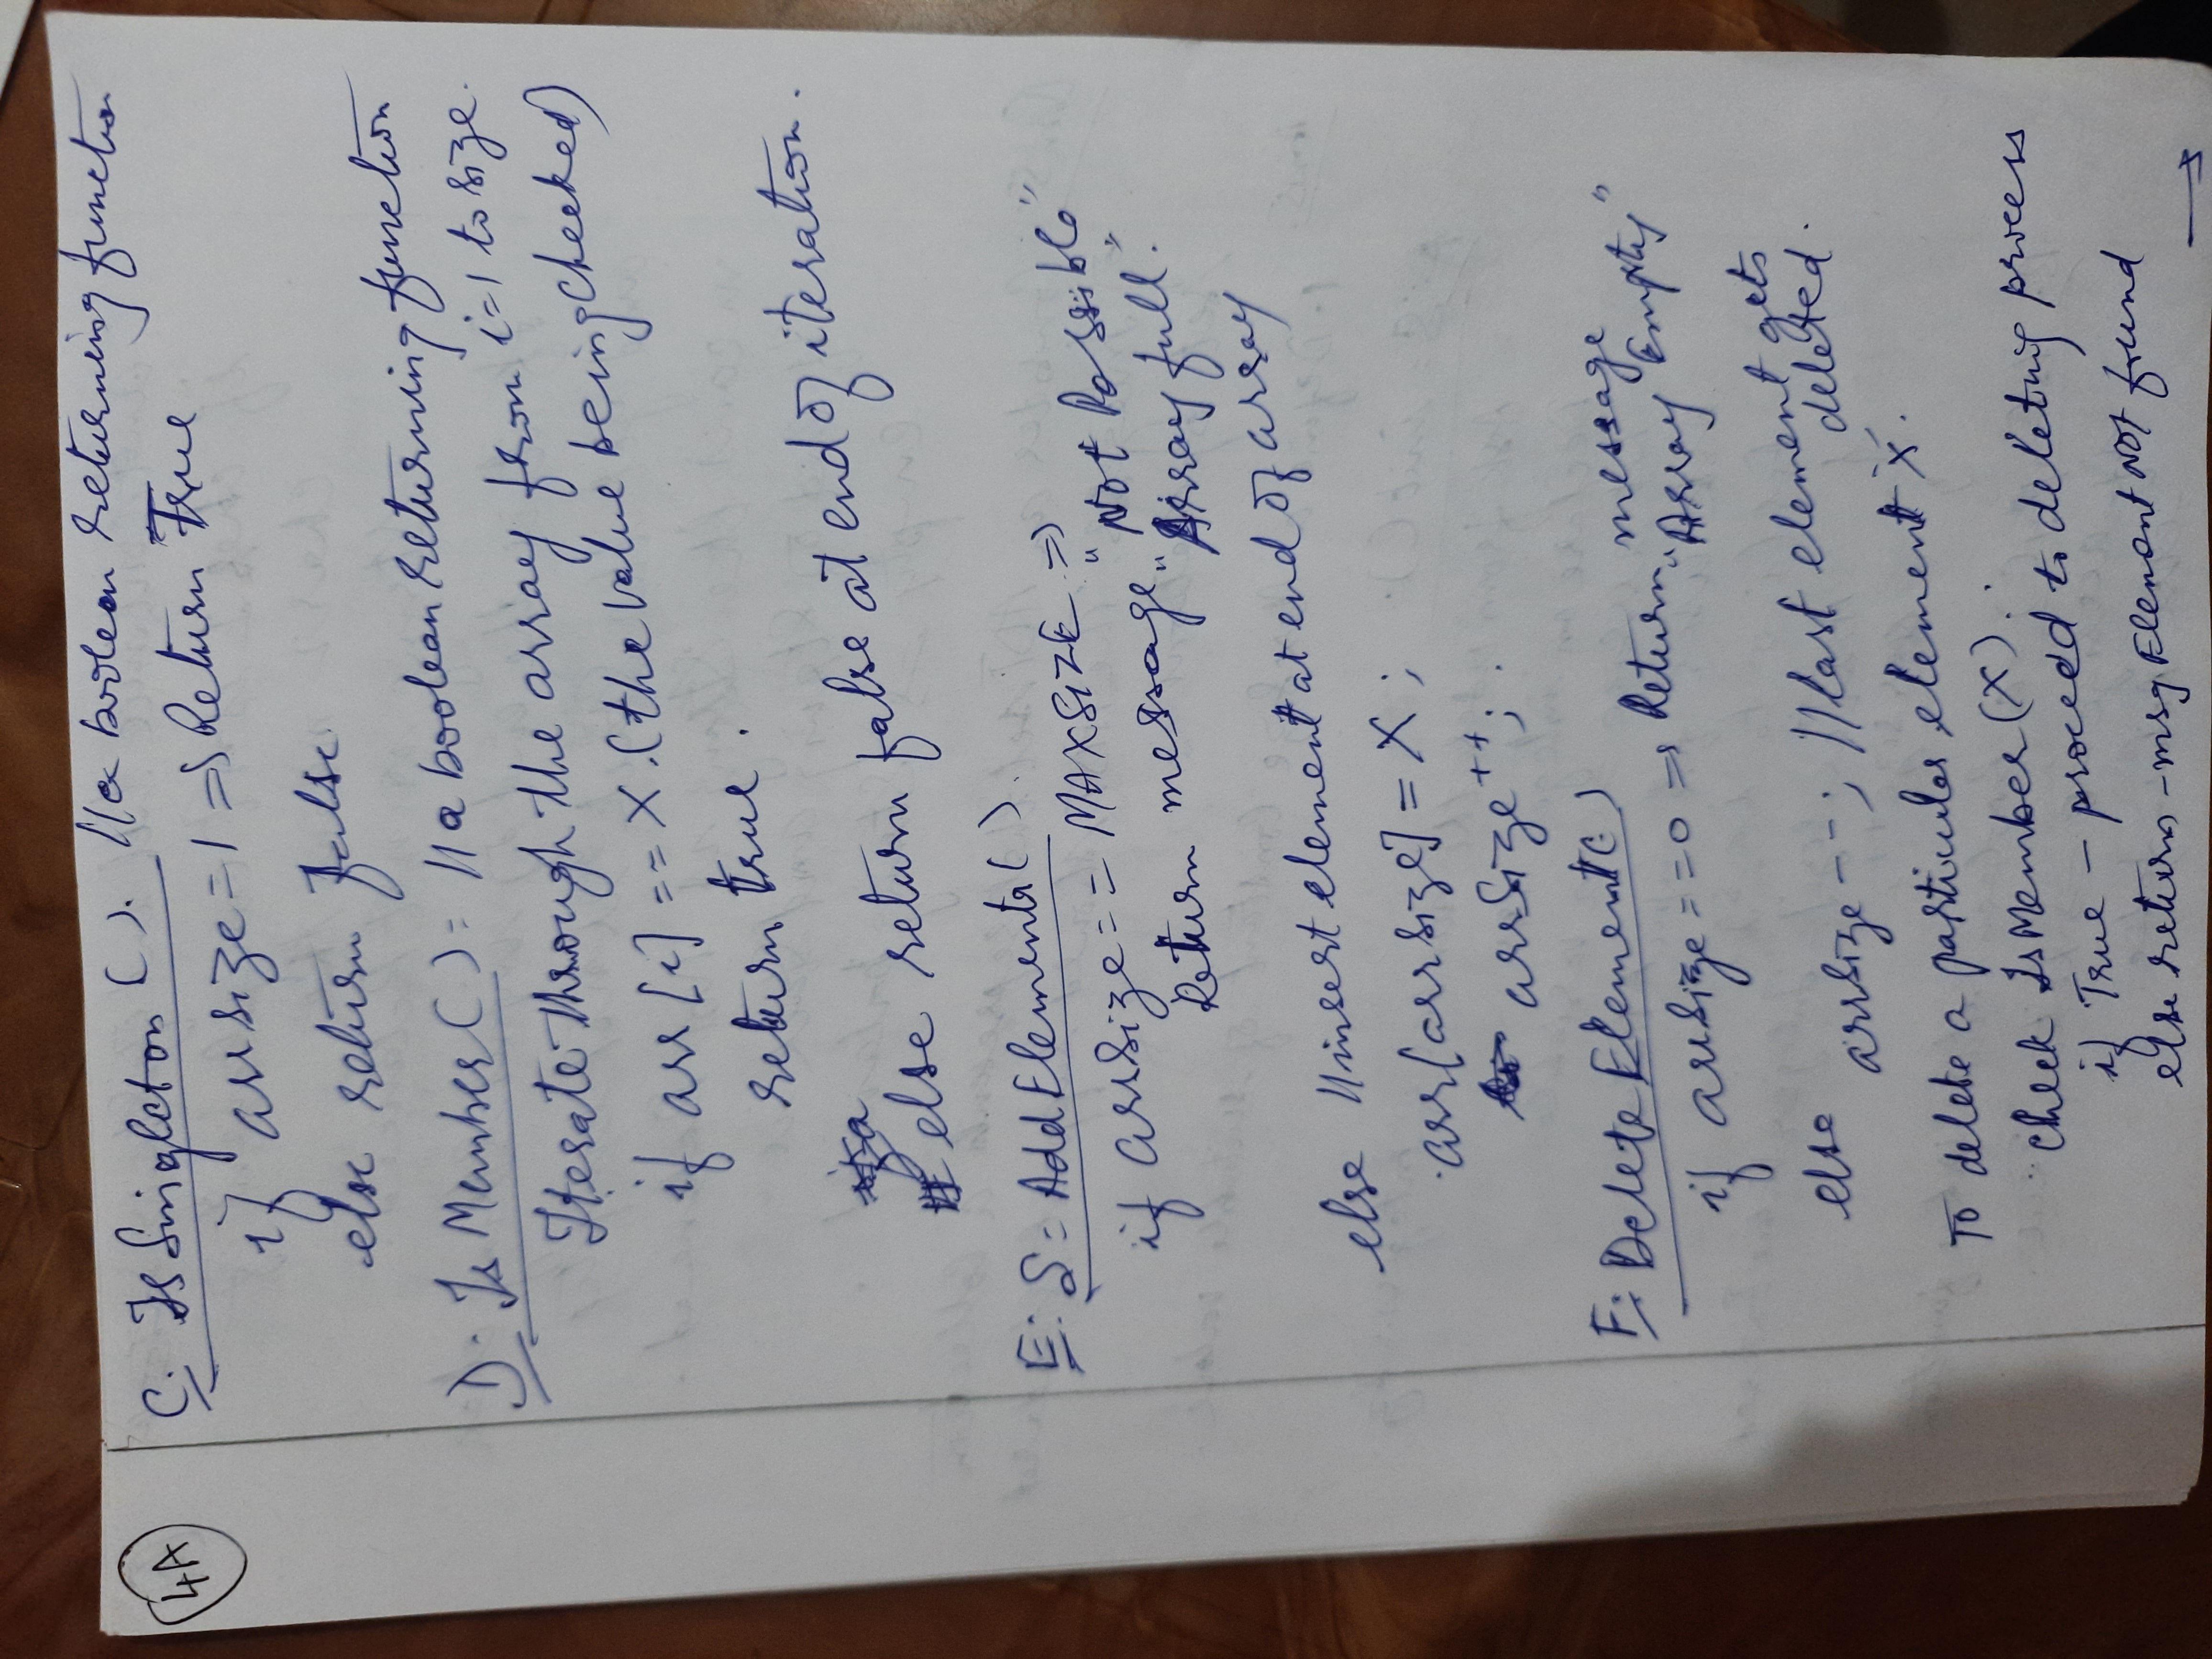 4A
C. IsSingleton(). //a boolean returning function
if arrsize=1 => Return True
else return false
D. IsMember() = //a boolean returning function
Iterate through the array from i=1 to size.
if arr[i] == X.(the value being checked)
return true.
else return false at end of iteration.
E: S = AddElement().
if arrSize == MAXSIZE =>
Return message "Not Possible"
"Array full."
else //insert element at end of array
arr[arrSize] = X;
arrSize++;
F: DeleteElement()
if arrSize==0 => Return message
"Array Empty"
else arrSize--; //last element gets
deleted.
To delete a particular element X.
Check IsMember(X).
if True - proceed to deleting process
else return - msg Element Not found
→